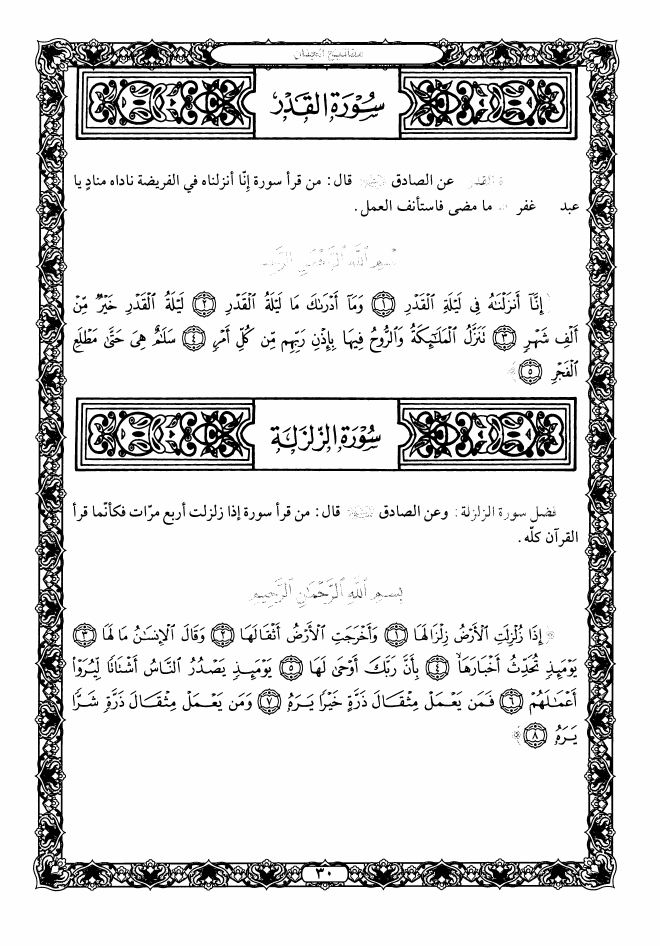 مفاتيح الجنان
سُورَةُ القَدْرِ
القدر عن الصادق قال: من قرأ سورة إنّا أنزلناه في الفريضة ناداه منادٍ يا
عبد غفر ما مضى فاستأنف العمل.
بِسْمِ اللَّهِ الرَّحْمَٰنِ
إِنَّآ أَنزَلْنَٰهُ فِى لَيْلَةِ ٱلْقَدْرِ ۝١ وَمَآ أَدْرَىٰكَ مَا لَيْلَةُ ٱلْقَدْرِ ۝٢ لَيْلَةُ ٱلْقَدْرِ خَيْرٌ مِّنْ
أَلْفِ شَهْرٍ ۝٣ تَنَزَّلُ ٱلْمَلَٰٓئِكَةُ وَٱلرُّوحُ فِيهَا بِإِذْنِ رَبِّهِم مِّن كُلِّ أَمْرٍ ۝٤ سَلَٰمٌ هِىَ حَتَّىٰ مَطْلَعِ
ٱلْفَجْرِ ۝٥
سُورَةُ الزَّلزَلَةِ
فضل سورة الزلزلة: وعن الصادق قال: من قرأ سورة إذا زلزلت أربع مرّات فكأنّما قرأ
القرآن كلّه.
بِسْمِ اللَّهِ الرَّحْمَٰنِ الرَّحِيمِ
﴿إِذَا زُلْزِلَتِ ٱلْأَرْضُ زِلْزَالَهَا ۝١ وَأَخْرَجَتِ ٱلْأَرْضُ أَثْقَالَهَا ۝٢ وَقَالَ ٱلْإِنسَٰنُ مَا لَهَا ۝٣
يَوْمَئِذٍ تُحَدِّثُ أَخْبَارَهَا ۝٤ بِأَنَّ رَبَّكَ أَوْحَىٰ لَهَا ۝٥ يَوْمَئِذٍ يَصْدُرُ ٱلنَّاسُ أَشْتَاتًا لِّيُرَوْا۟
أَعْمَٰلَهُمْ ۝٦ فَمَن يَعْمَلْ مِثْقَالَ ذَرَّةٍ خَيْرًا يَرَهُۥ ۝٧ وَمَن يَعْمَلْ مِثْقَالَ ذَرَّةٍ شَرًّا
يَرَهُۥ ۝٨﴾
٣٠